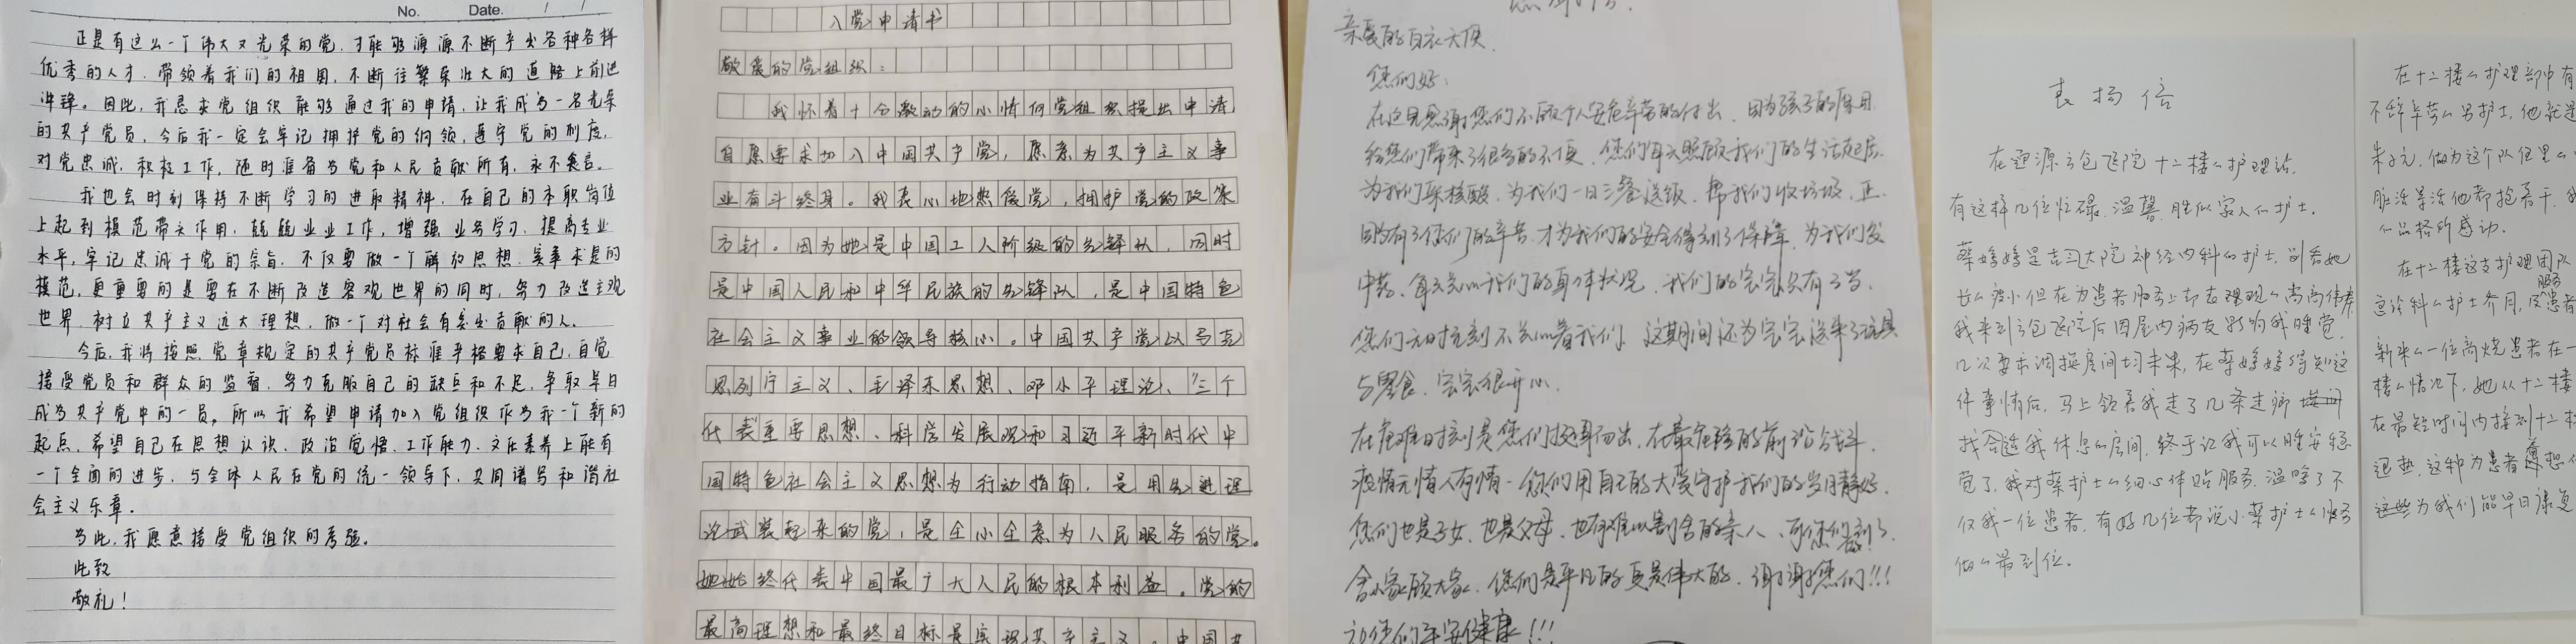 No. Date. / /
正是有这么一个伟大又光荣的党,才能够源源不断产出各种各样
优秀的人才,带领着我们的祖国,不断往繁荣壮大的道路上前进
冲锋。因此,我恳求党组织能够通过我的申请,让我成为一名光荣
的共产党员,今后我一定会牢记拥护党的纲领,遵守党的制度,
对党忠诚,积极工作,随时准备为党和人民贡献所有,永不食言。
我也会时刻保持不断学习的进取精神,在自己的本职岗位
上起到模范带头作用,兢兢业业工作,增强业务学习,提高专业
水平,牢记忠诚于党的宗旨,不仅要做一个解放思想、实事求是的
模范,更重要的是要在不断改造客观世界的同时,努力改造主观
世界,树立共产主义远大理想,做一个对社会有突出贡献的人。
今后,我将按照党章规定的共产党员标准严格要求自己,自觉
接受党员和群众的监督,努力克服自己的缺点和不足,争取早日
成为共产党中的一员。所以我希望申请加入党组织作为我一个新的
起点,希望自己在思想认识、政治觉悟、工作能力、文化素养上能有
一个全面的进步,与全体人民在党的统一领导下,共同谱写和谐社
会主义乐章。
为此,我愿意接受党组织的考验。
此致
敬礼!
入党申请书
敬爱的党组织:
我怀着十分激动的心情向党组织提出申请
自愿要求加入中国共产党,愿意为共产主义事
业奋斗终身。我衷心地热爱党,拥护党的政策
方针。因为她是中国工人阶级的先锋队,同时
是中国人民和中华民族的先锋队,是中国特色
社会主义事业的领导核心。中国共产党以马克
思列宁主义、毛泽东思想、邓小平理论、“三个
代表重要思想、科学发展观和习近平新时代中
国特色社会主义思想为行动指南,是用先进理
论武装起来的党,是全心全意为人民服务的党。
她始终代表中国最广大人民的根本利益。党的
最高理想和最终目标是实现共产主义。中国共
亲爱的白衣天使
您们好:
在这里感谢您们不顾个人安危辛劳的付出,因为孩子的原因
给您们带来了很多的不便,您们每天照顾我们的生活起居
为我们采核酸,为我们一日三餐送饭,帮我们收垃圾,正
因为有了您们的辛苦,才为我们的安全得到了保障,为我们发
中药,每天关心我们的身体状况,我们的宝宝只有3岁
您们无时无刻不关心着我们,这期间还为宝宝送来了玩具
与零食,宝宝很开心.
在危难时刻是您们挺身而出,在最危险的前沿战斗,
疫情无情人有情,您们用自己的大爱守护我们的岁月静好,
您们也是子女,也是父母,也有难以割舍的亲人,可您们
舍小家顾大家,您们是平凡的更是伟大的,谢谢您们!!!
祝您们平安健康!!!
表扬信
在通源方仓医院十二楼的护理站,
有这样几位忙碌,温馨,胜似家人的护士.
蔡婷婷是 大院神经内科的护士,别看她
长的瘦小但在为患者服务上却在 高高
我来到方仓医院后因屋内病友 影响我睡觉,
几次要求调换房间均未果,在蔡婷婷得知这
件事情后,马上领着我走了几条走廊
找合适我休息的房间,终于让我可以睡安稳
觉了,我对蔡护士的细心体贴服务,温暖了不
仅我一位患者,有好几位都说小蔡护士的服务
做的最到位.
在十二楼的护理部中有
不辞辛劳的男护士,他就是
朱 元,做为这个队伍里的
脏活累活他都抢着干,
的品格所感动.
在十二楼这支护理团队
新来的一位高烧患者在一
楼的情况下,她从十二楼
在最短时间内接到十二楼
退热,这种为患者 想
这些为我们能早日康复